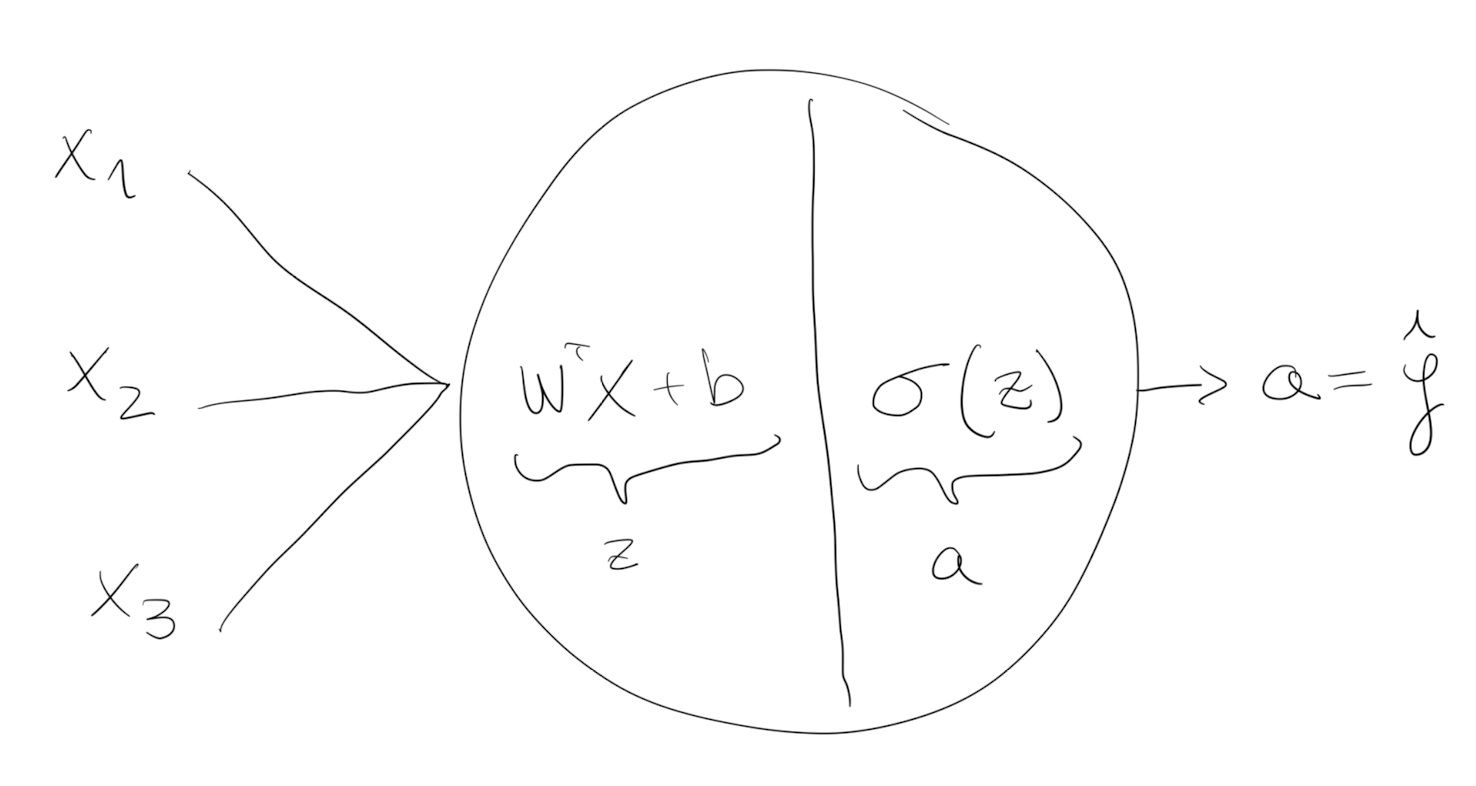 x₁
x₂
x₃
wᵀx + b
z
σ(z)
a
→ a = ŷ